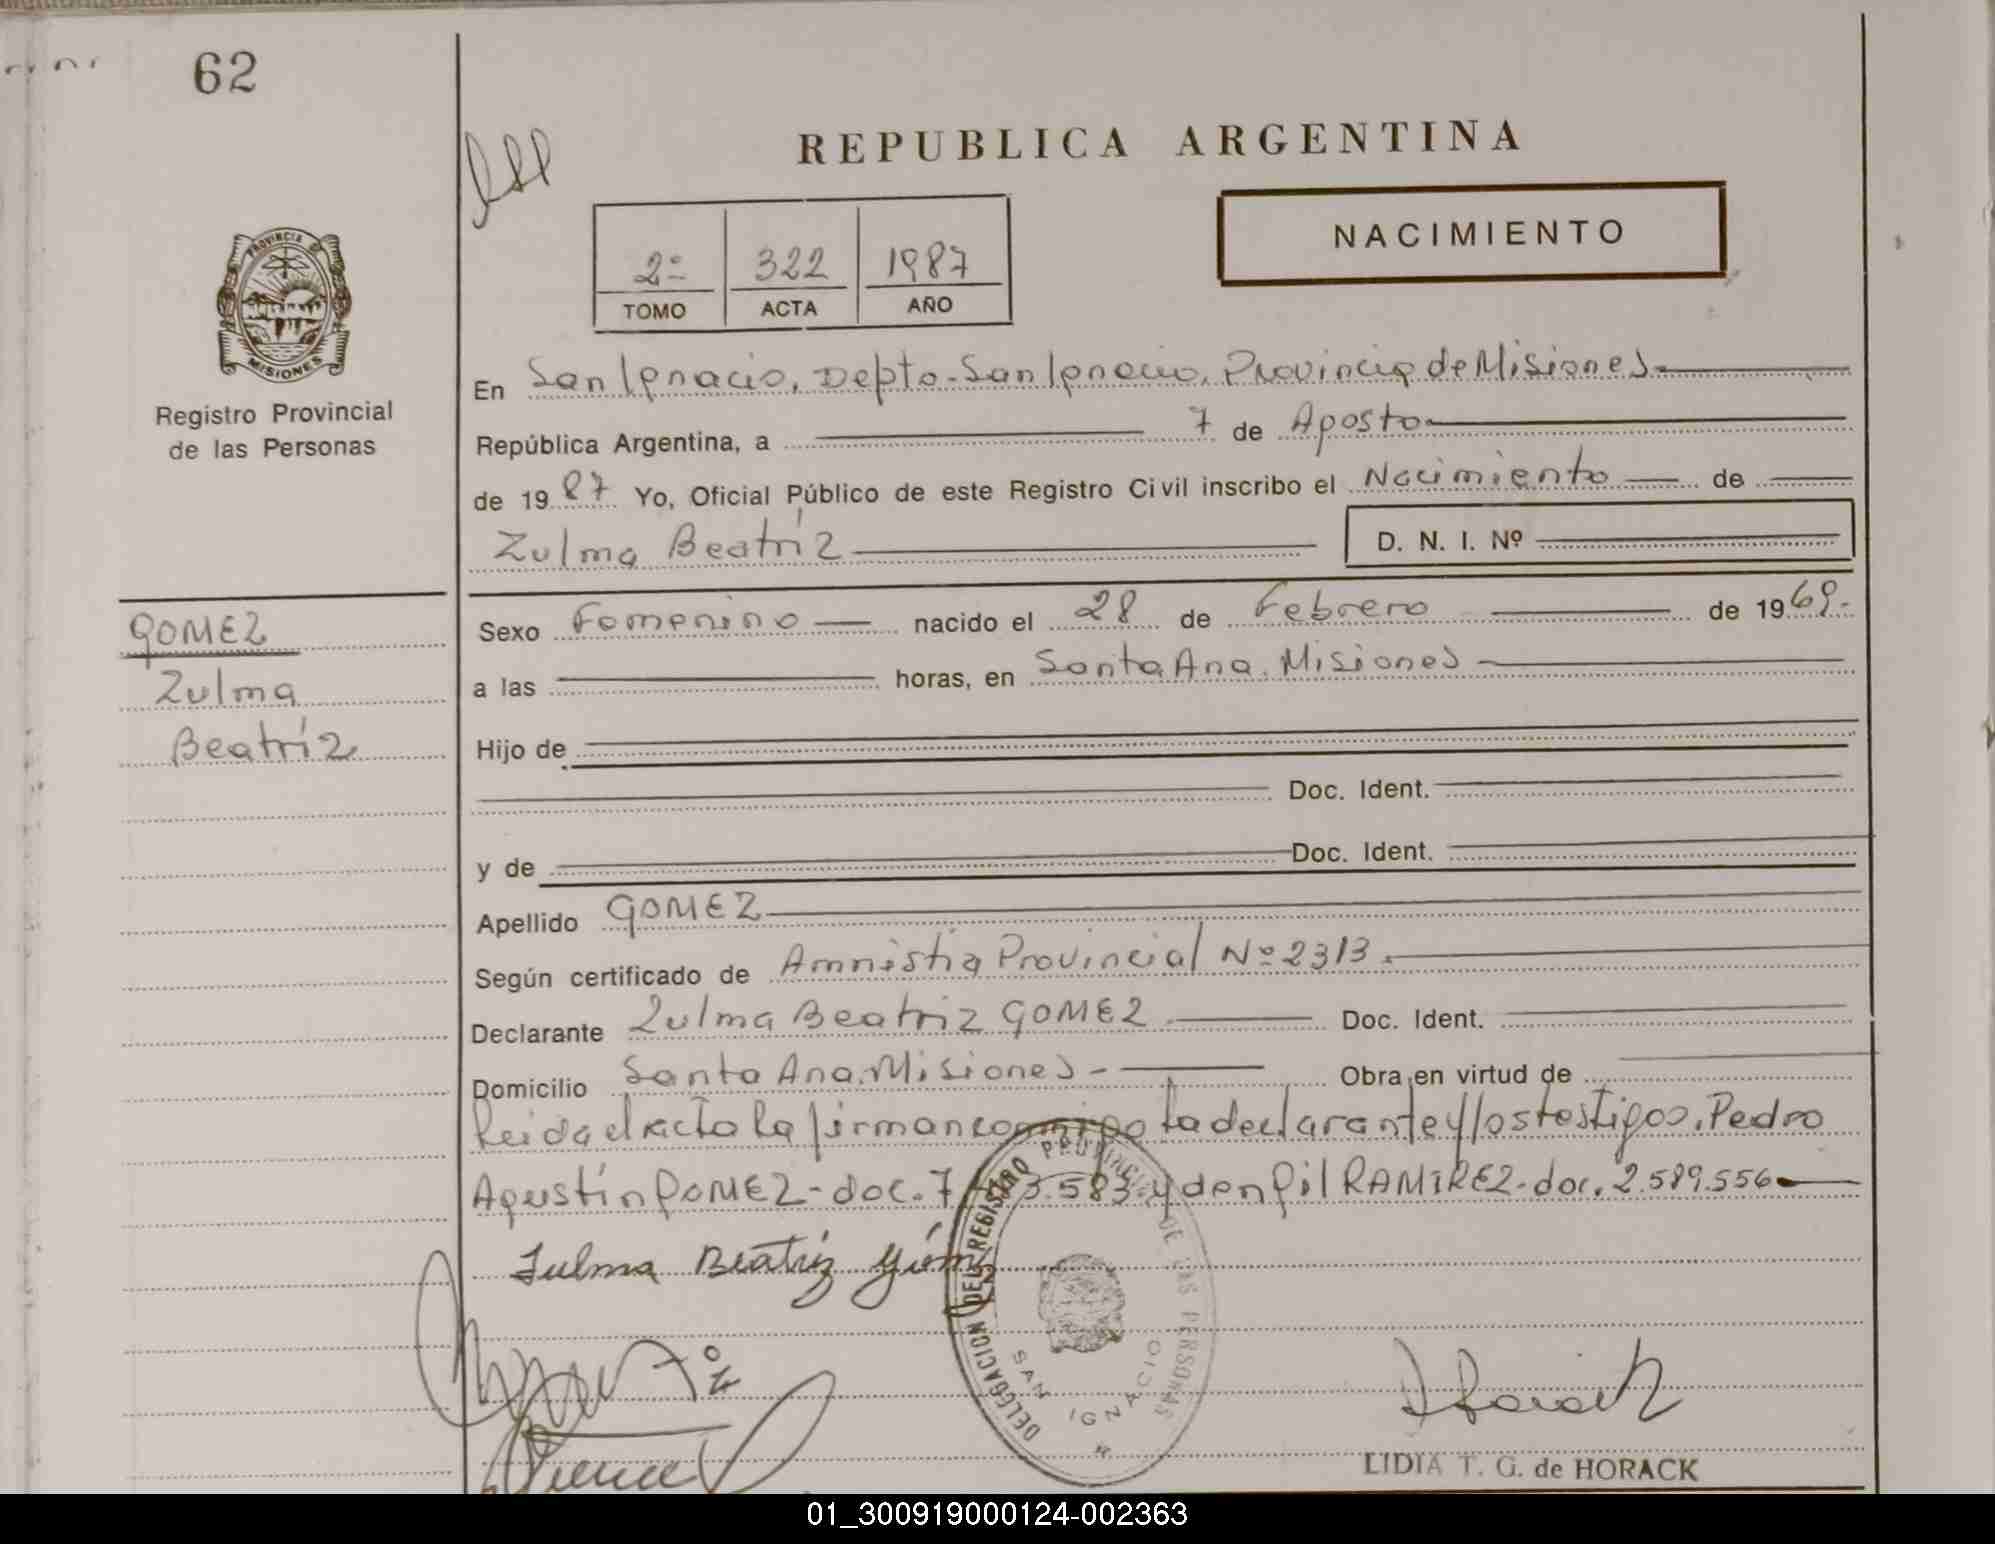 62
REPUBLICA ARGENTINA
NACIMIENTO
2º 322 1987
TOMO ACTA AÑO
PROVINCIA DE
MISIONES
Registro Provincial
de las Personas
En San Ignacio, Depto. San Ignacio, Provincia de Misiones
República Argentina, a 7 de Agosto
de 19 87 Yo, Oficial Público de este Registro Civil inscribo el Nacimiento de
Zulma Beatríz D. N. I. Nº
GOMEZ
Zulma
Beatríz
Sexo Femenino nacido el 28 de Febrero de 19 69.
a las horas, en Santa Ana. Misiones
Hijo de
Doc. Ident.
y de Doc. Ident.
Apellido GOMEZ
Según certificado de Amnistia Provincial Nº 2313.
Declarante Zulma Beatriz GOMEZ Doc. Ident.
Domicilio Santa Ana. Misiones - Obra en virtud de
Leida el acta la firman conmigo la declarante y los testigos. Pedro
Agustín GOMEZ - doc. 7 3.583 y RAMIREZ. doc. 2.589.556
Zulma Beatriz Góm
DELEGACION DEL REGISTRO PROVINCIAL DE LAS PERSONAS
SAN IGNACIO
LIDIA T. G. de HORACK
01_300919000124-002363